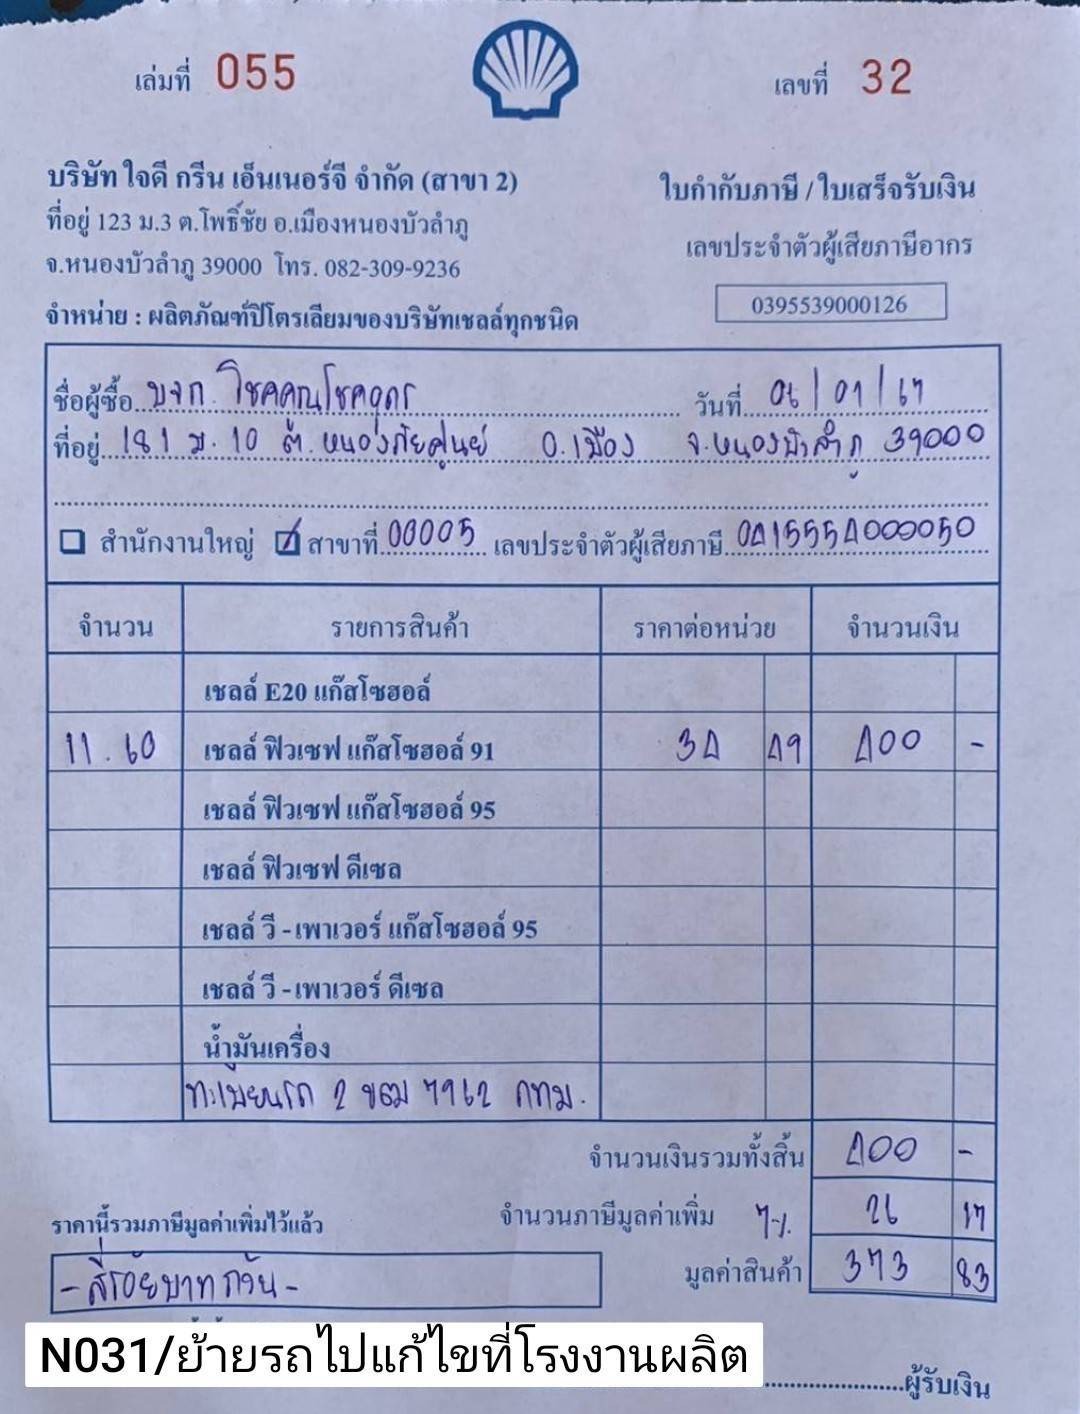 เล่มที่ 055
เลขที่ 32
บริษัท ใจดี กรีน เอ็นเนอร์จี จำกัด (สาขา 2)
ใบกำกับภาษี / ใบเสร็จรับเงิน
ที่อยู่ 123 ม.3 ต.โพธิ์ชัย อ.เมืองหนองบัวลำภู
เลขประจำตัวผู้เสียภาษีอากร
จ.หนองบัวลำภู 39000 โทร. 082-309-9236
0395539000126
จำหน่าย : ผลิตภัณฑ์ปิโตรเลียมของบริษัทเชลล์ทุกชนิด
ชื่อผู้ซื้อ บจก. โชคคูณโชคอุดร วันที่ 06/01/67
ที่อยู่ 181 ม.10 ต.หนองภัยศูนย์ อ.เมือง จ.หนองบัวลำภู 39000
สำนักงานใหญ่ สาขาที่ 00005 เลขประจำตัวผู้เสียภาษี 0415554000050
จำนวน รายการสินค้า ราคาต่อหน่วย จำนวนเงิน
เชลล์ E20 แก๊สโซฮอล์
11.60 เชลล์ ฟิวเซฟ แก๊สโซฮอล์ 91 34 49 400 -
เชลล์ ฟิวเซฟ แก๊สโซฮอล์ 95
เชลล์ ฟิวเซฟ ดีเซล
เชลล์ วี - เพาเวอร์ แก๊สโซฮอล์ 95
เชลล์ วี - เพาเวอร์ ดีเซล
น้ำมันเครื่อง
ทะเบียนรถ 2 ขฒ 7962 กทม.
จำนวนเงินรวมทั้งสิ้น 400 -
ราคานี้รวมภาษีมูลค่าเพิ่มไว้แล้ว จำนวนภาษีมูลค่าเพิ่ม 7% 26 17
มูลค่าสินค้า 373 83
- สี่ร้อยบาทถ้วน -
N031/ย้ายรถไปแก้ไขที่โรงงานผลิต
ผู้รับเงิน